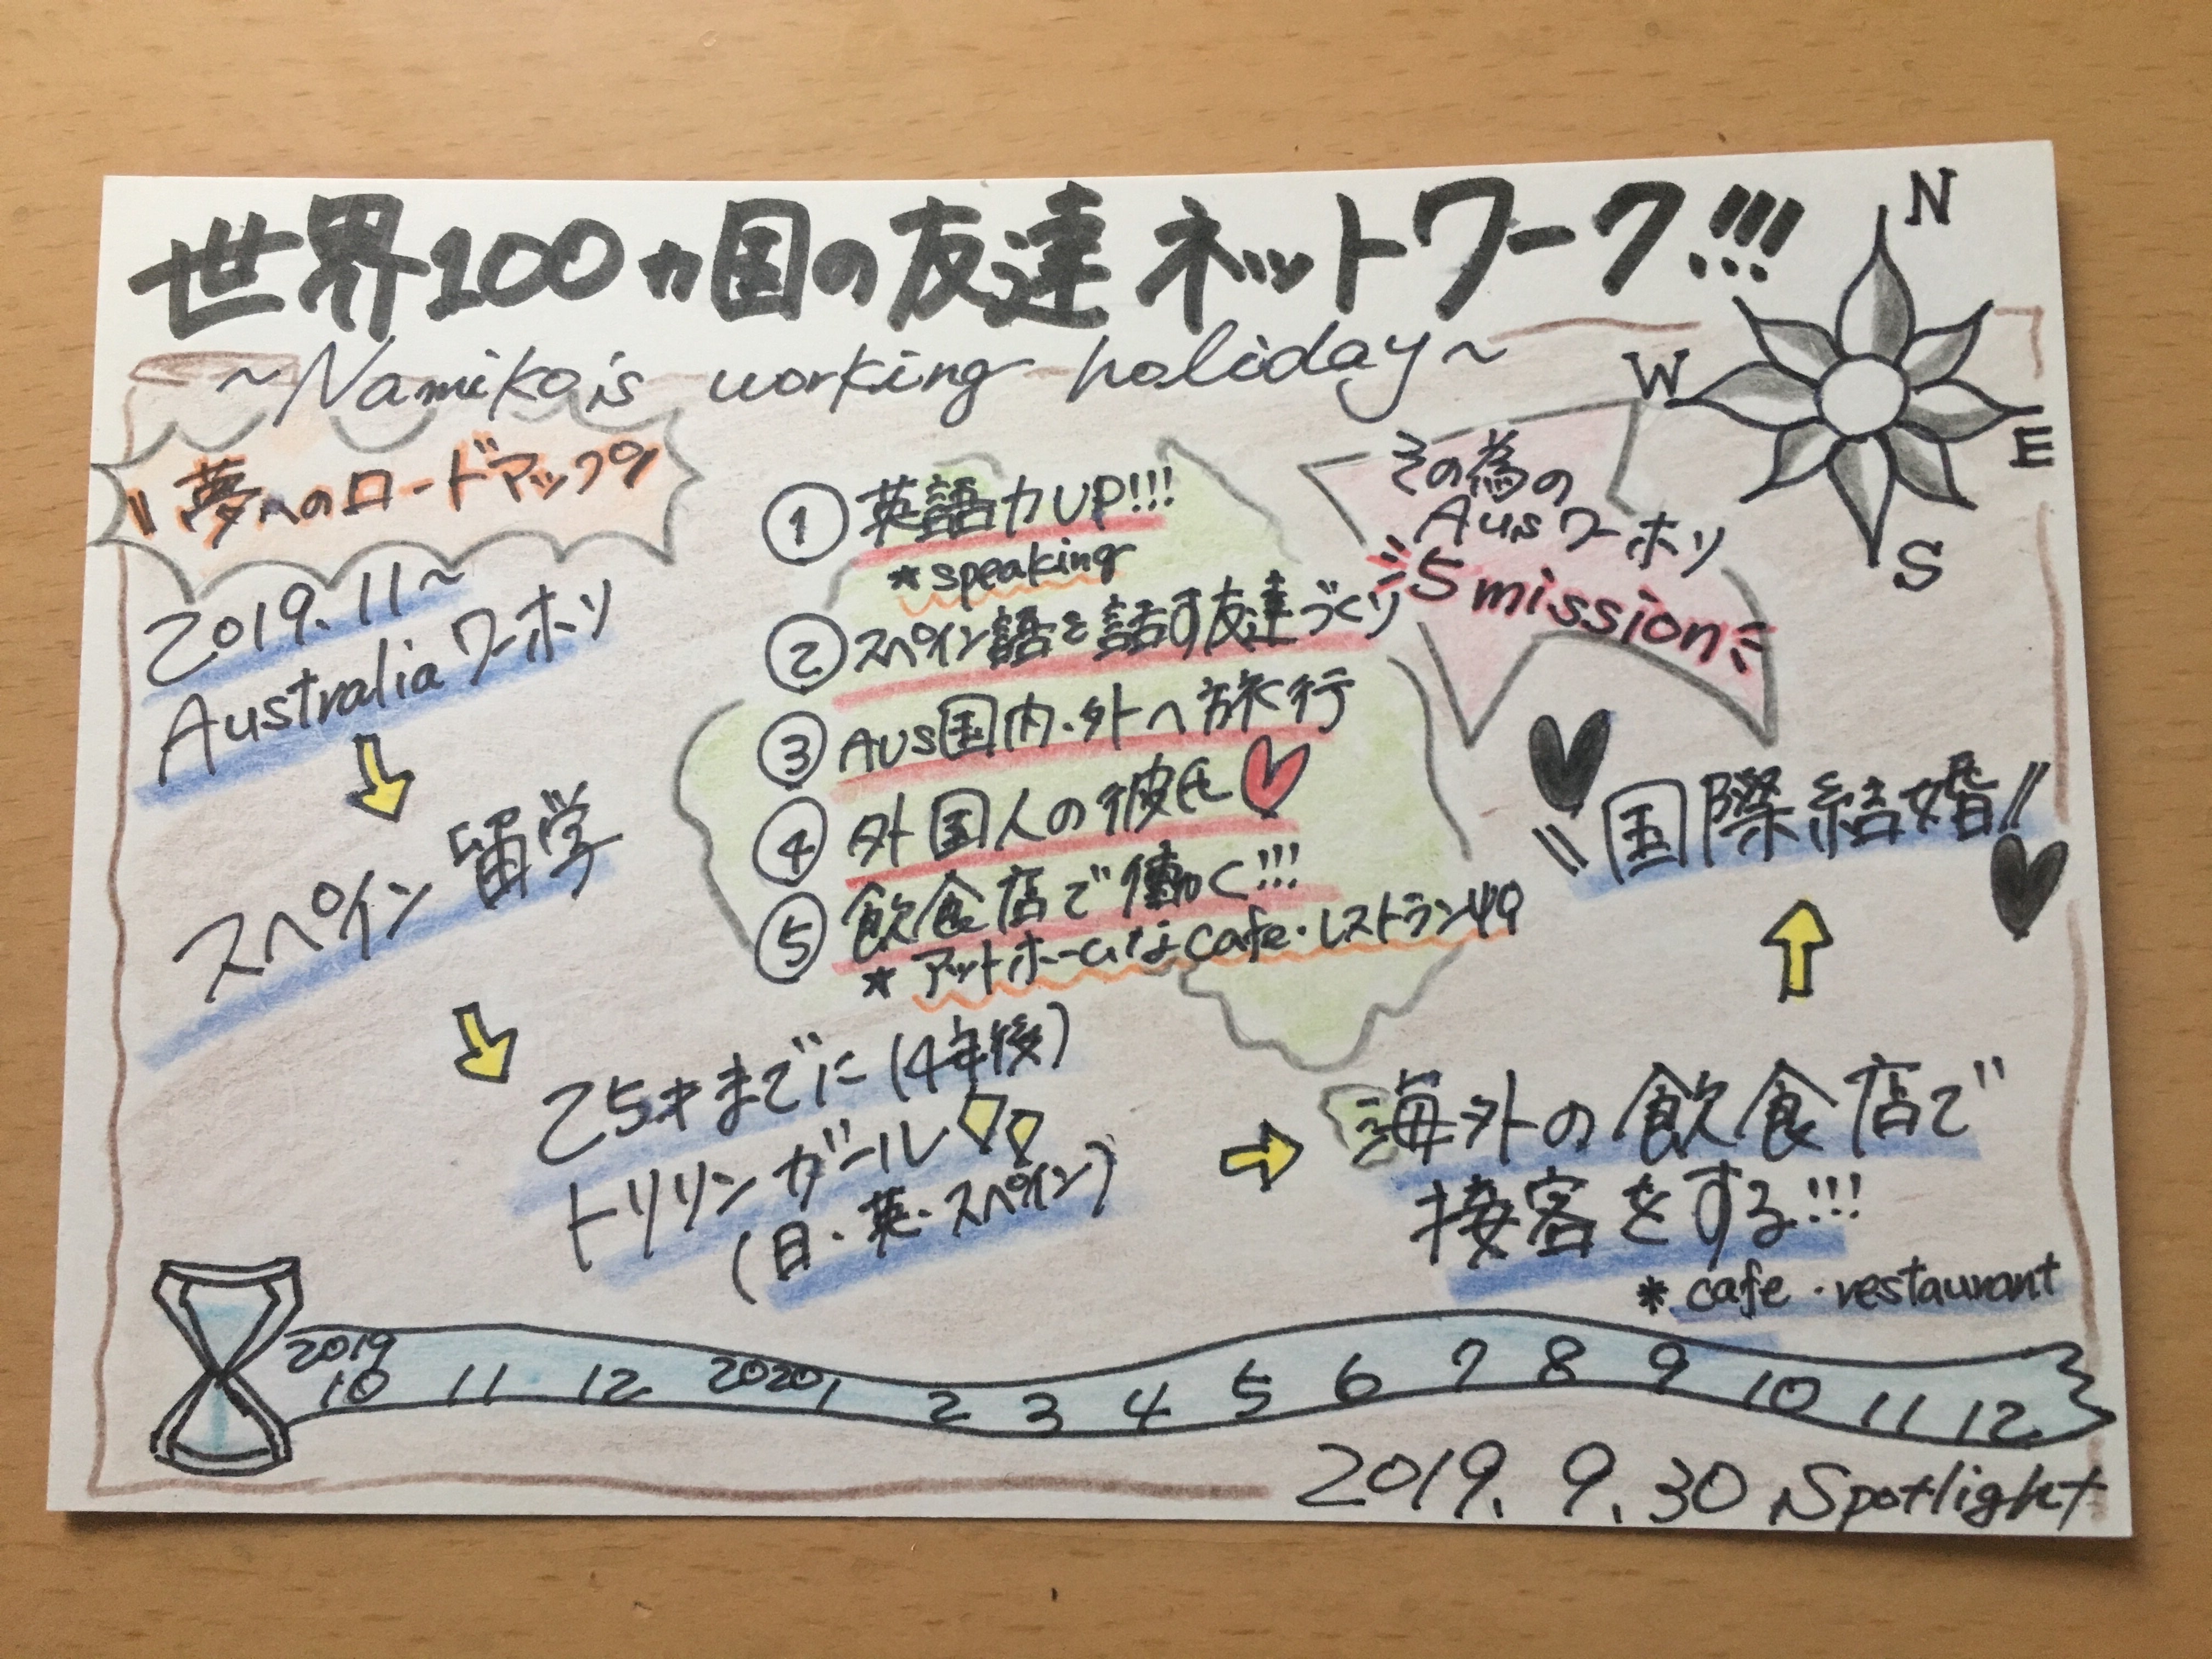 世界100ヵ国の友達ネットワーク!!!
~Namiko's working holiday~
N
W
E
S
"夢へのロードマップ"
2019.11~
Australiaワーホリ
スペイン留学
25才までに(4年後)
トリリンガール
(日・英・スペイン)
海外の飲食店で
接客をする!!!
* cafe・restaurant
"国際結婚"
その為の
Ausワーホリ
5 mission
① 英語力UP!!!
* speaking
② スペイン語を話す友達づくり
③ Aus国内・外へ旅行
④ 外国人の彼氏
⑤ 飲食店で働く!!!
* アットホームなcafe・レストラン
2019
10 11 12 2020 1 2 3 4 5 6 7 8 9 10 11 12
2019. 9. 30 Spotlight